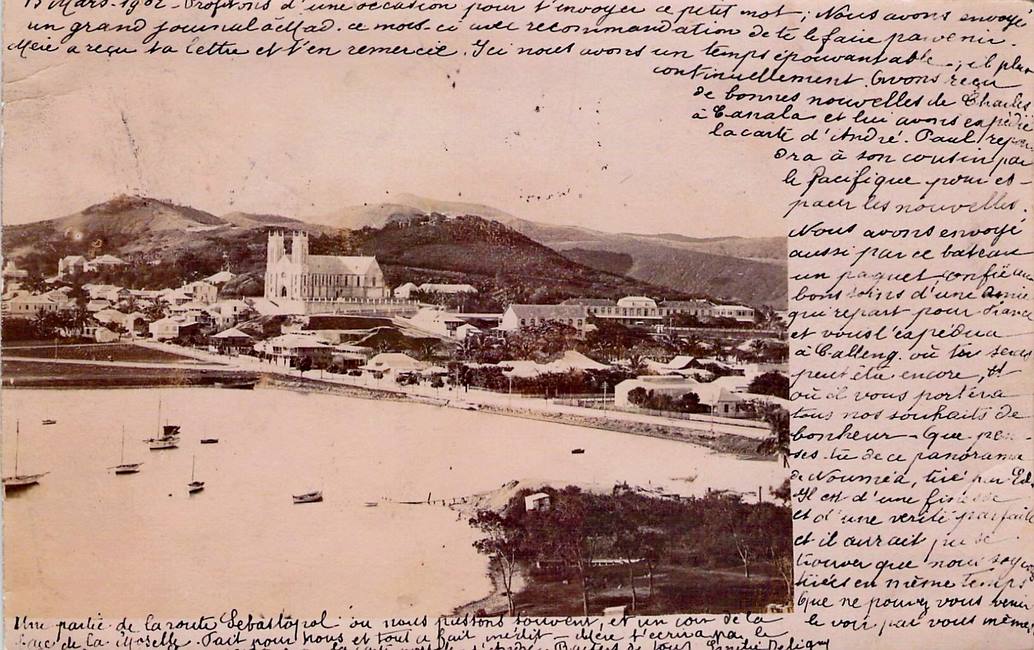 15 Mars 1902 - Profitons d'une occasion pour t'envoyer ce petit mot ; Nous avons envoyé
un grand journal à Mad. ce mois-ci avec recommandation de te le faire parvenir.
a reçu ta lettre et t'en remercie. Ici nous avons un temps épouvantable ; il pleut
continuellement. Avons reçu
de bonnes nouvelles de Charles
à Canala et lui avons expédié
la carte d'André. Paul répon-
dra à son cousin par
le Pacifique pour es-
pacer les nouvelles.
Nous avons envoyé
aussi par ce bateau
un paquet confié aux
bons soins d'une amie
qui repart pour France
et vous l'expédiera
à où tu seras
peut être encore, et
où il vous portera
tous nos souhaits de
bonheur - Que pen-
ses-tu de ce panorama
de Nouméa, tiré par Ed.
Il est d'une finesse
et d'une vérité parfaite
et il aurait pu se
trouver que nous soyons
tirées en même temps
Que ne pouvez vous venir
le voir par vous même,
Une partie de la route Sébastopol où nous passons souvent, et un coin de la
de la Moselle. Fait pour nous et tout à fait inédit -
la carte d'André. de tous